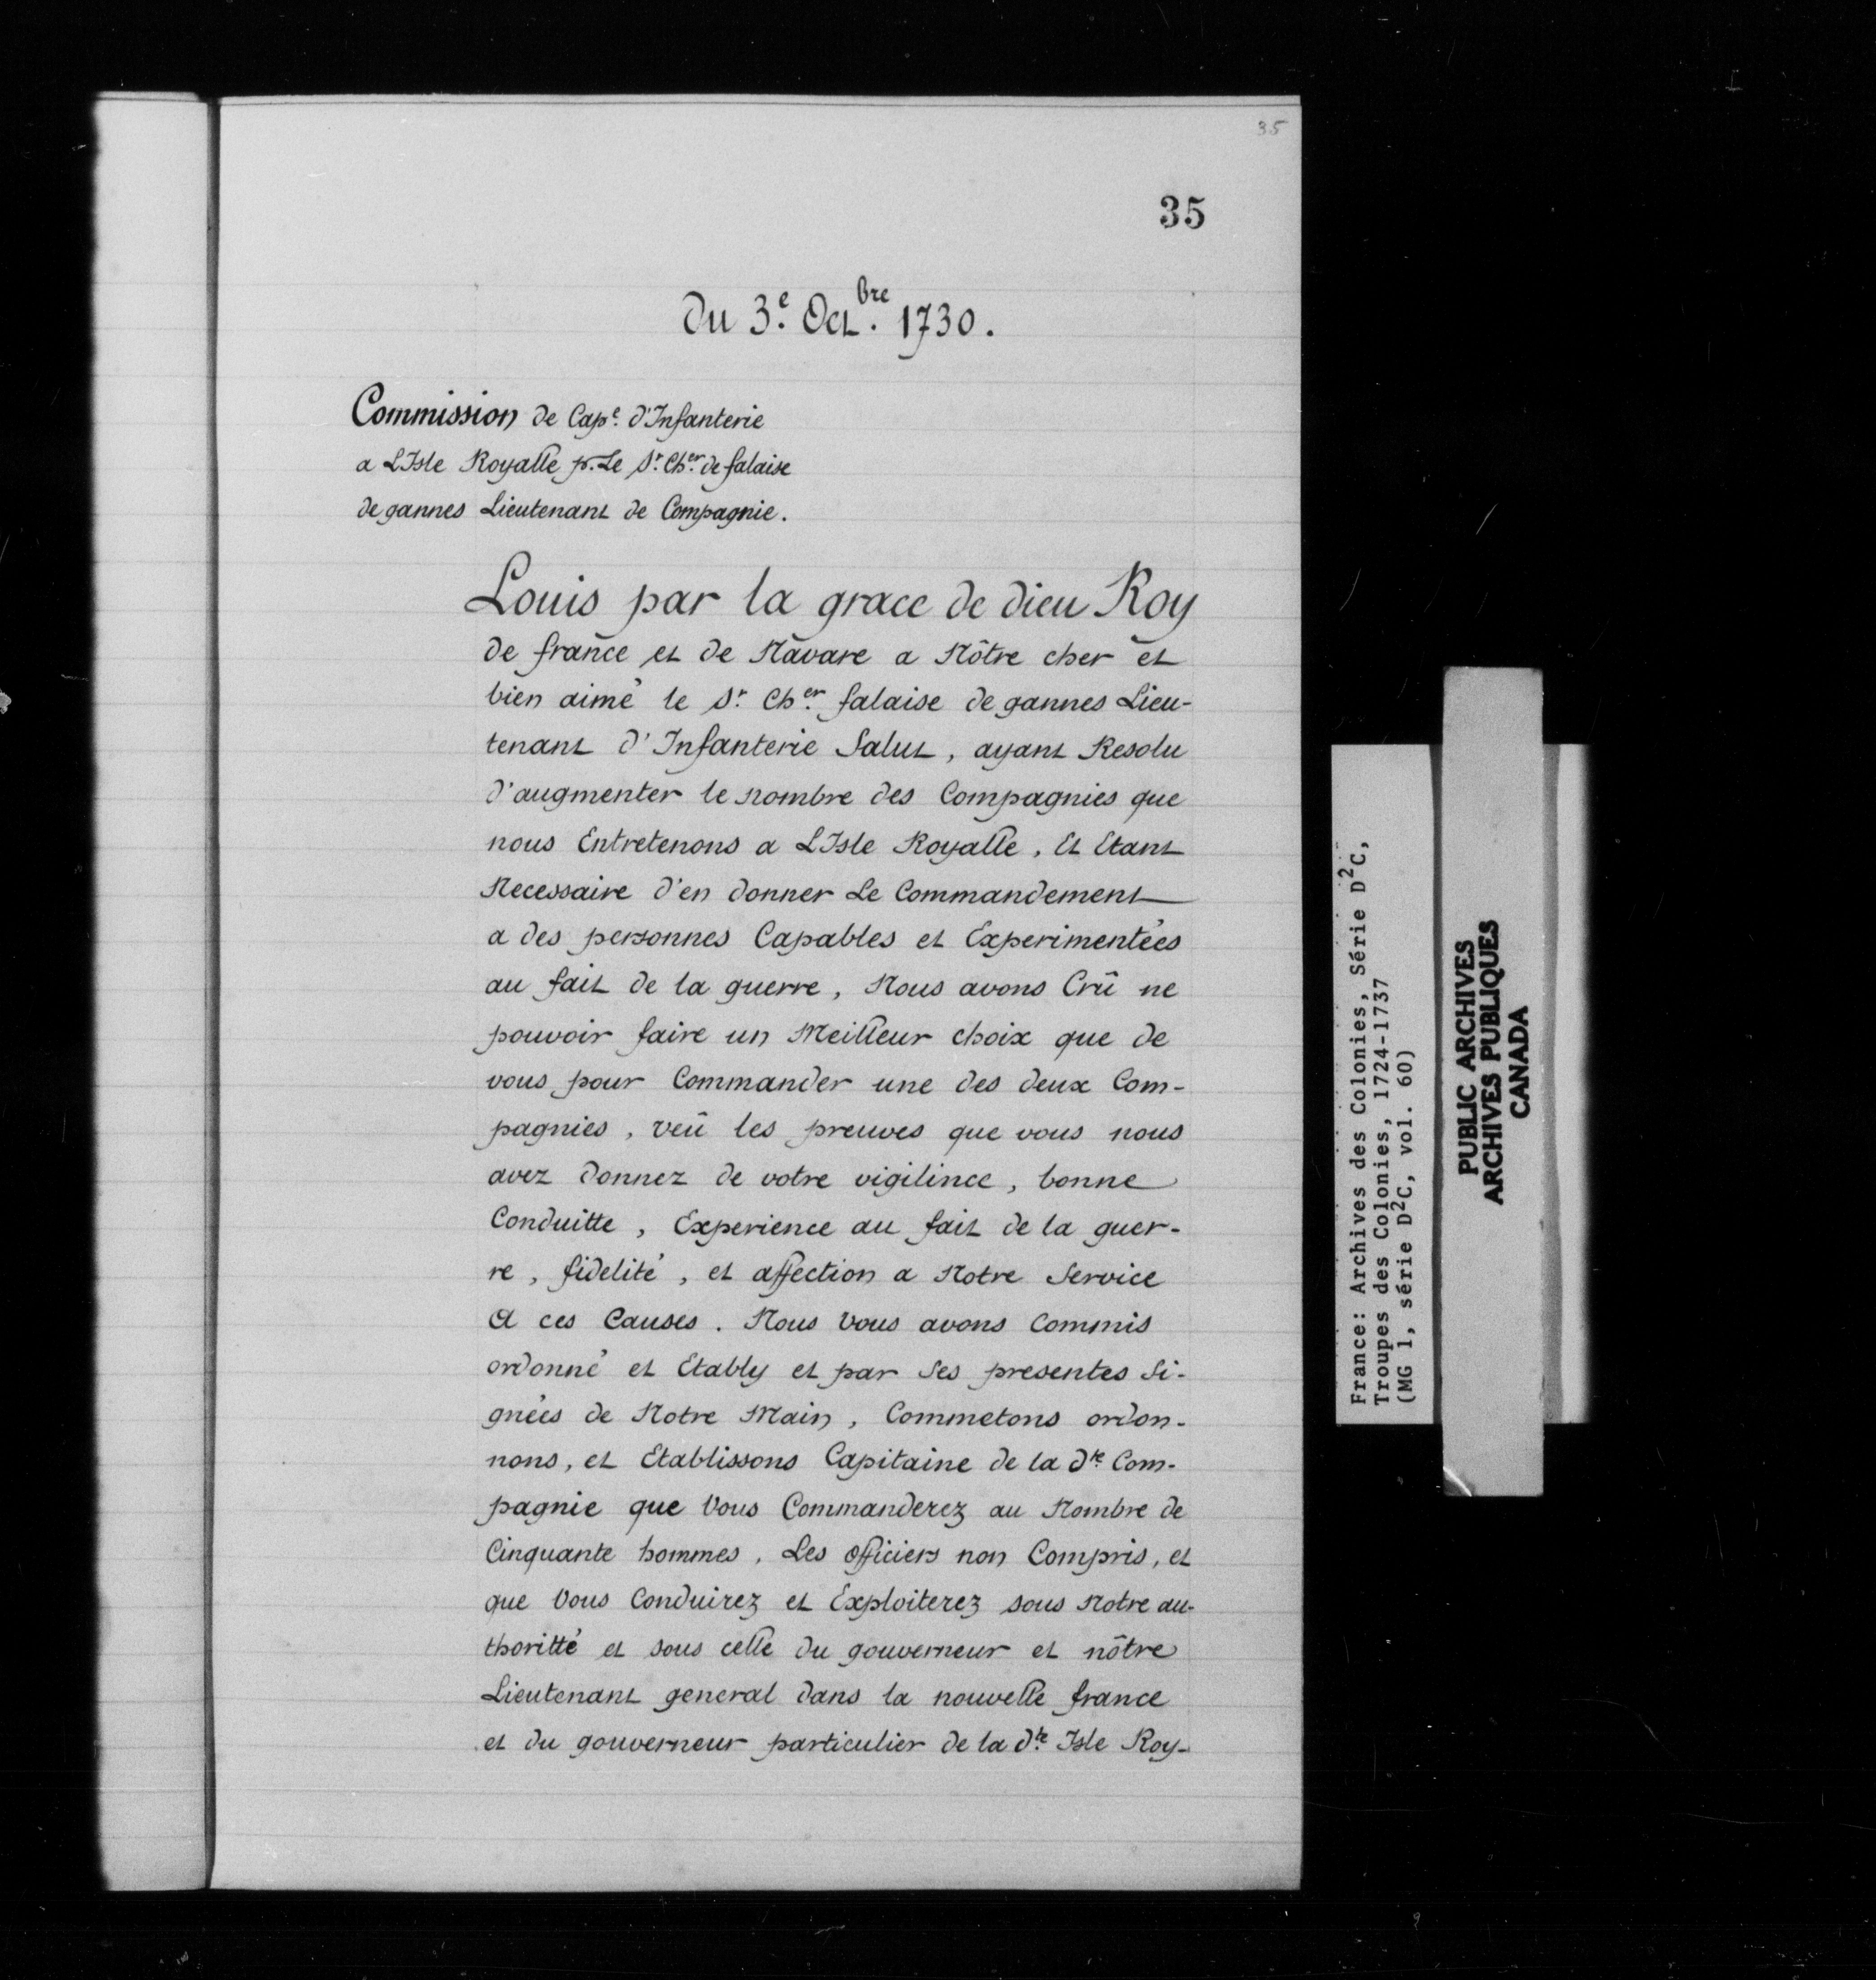 35
35
Du 3.e Oct.bre 1730.
Commission de Cap.e d'Infanterie
a L'Isle Royalle p. Le S.r Ch.er de falaise
de gannes Lieutenant de Compagnie.
Louis par la grace de dieu Roy
de france et de Navare a Nôtre cher et
bien aimé le S.r Ch.er falaise de gannes Lieu-
tenant d'Infanterie Salut, ayant Resolu
d'augmenter le nombre des Compagnies que
nous Entretenons a L'Isle Royalle, Et Etant
Necessaire d'en donner Le Commandement
a des personnes Capables et Experimentées
au fait de la guerre, Nous avons Crû ne
pouvoir faire un Meilleur choix que de
vous pour Commander une des deux Com-
pagnies, veû les preuves que vous nous
avez donnez de votre vigilince, bonne
Conduitte, Experience au fait de la guer-
re, fidelité, et affection a Notre Service
A ces Causes. Nous Vous avons Commis
ordonné et Etably et par Ses presentes Si-
gnées de Notre Main, Commetons ordon-
nons, et Etablissons Capitaine de la d.te Com-
pagnie que Vous Commanderez au Nombre de
Cinquante hommes, Les officiers non Compris, et
que Vous Conduirez et Exploiterez sous Notre au-
thoritté et sous celle du gouverneur et nôtre
Lieutenant general dans la nouvelle france
et du gouverneur particulier de la d.te Isle Roy-
France: Archives des Colonies, Série D2C,
Troupes des Colonies, 1724-1737
(MG 1, série D2C, vol. 60)
PUBLIC ARCHIVES
ARCHIVES PUBLIQUES
CANADA